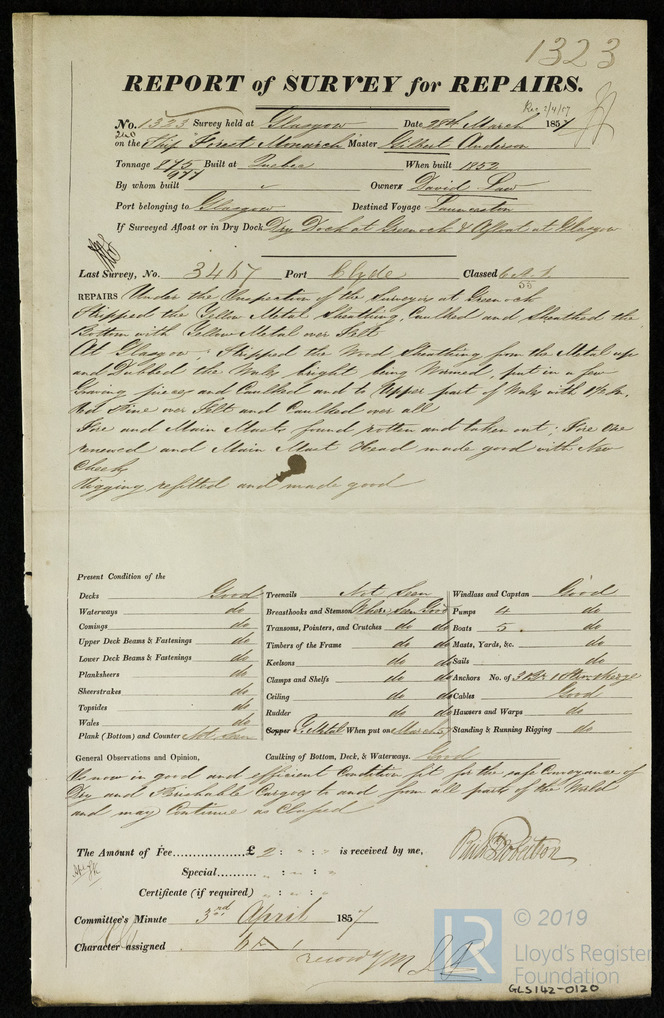 1323
REPORT of SURVEY for REPAIRS.
Rec 2/4/57
No. 1323 Survey held at Glasgow Date 28th March 1857
on the Ship Forest Monarch Master Gilbert Anderson
Tonnage 875 Built at Quebec When built 1852
977
By whom built Owners David Law
Port belonging to Glasgow Destined Voyage Launceston
If Surveyed Afloat or in Dry Dock Dry Dock at Greenock & Afloat at Glasgow
Last Survey, No. 3467 Port Clyde Classed 6 A 1
REPAIRS Under the Inspection of the Surveyor at Greenock
Stripped the Yellow Metal Sheathing, Caulked and Sheathed the
Bottom with Yellow Metal over Felt
At Glasgow. Stripped the Wood Sheathing from the Metal up
and Dubbed the Wales bright being Wormed, put in a few
Graving pieces and Caulked and to Upper part of Wales with 1½ In.
Red Pine over Felt and Caulked over all
Fore and Main Masts found rotten and taken out; Fore one
renewed and Main Mast Head made good with New
Cheek
Rigging refitted and made good
Present Condition of the
Decks Good
Waterways do
Comings do
Upper Deck Beams & Fastenings do
Lower Deck Beams & Fastenings do
Planksheers do
Sheerstrakes do
Topsides do
Wales do
Plank (Bottom) and Counter Not Seen
Treenails Not Seen
Breasthooks and Stemson Where Seen Good
Transoms, Pointers, and Crutches do do
Timbers of the Frame do do
Keelsons do do
Clamps and Shelfs do do
Ceiling do do
Rudder do do
Copper Y. Metal When put on March 57
Windlass and Capstan Good
Pumps 4 do
Boats 5 do
Masts, Yards, &c. do
Sails do
Anchors No. of 3 Br 1 Stm
Cables Good
Hausers and Warps do
Standing & Running Rigging do
General Observations and Opinion, Caulking of Bottom, Deck, & Waterways. Good
Is now in good and efficient Condition fit for the safe Conveyance of
Dry and Perishable Cargoes to and from all parts of the World
and may Continue as Classed
The Amount of Fee £ 2 : is received by me,
Special
Certificate (if required)
Committee's Minute 3rd April 1857
Character assigned 6 A 1
© 2019
LR
Lloyd's Register
Foundation
GLS142-0120